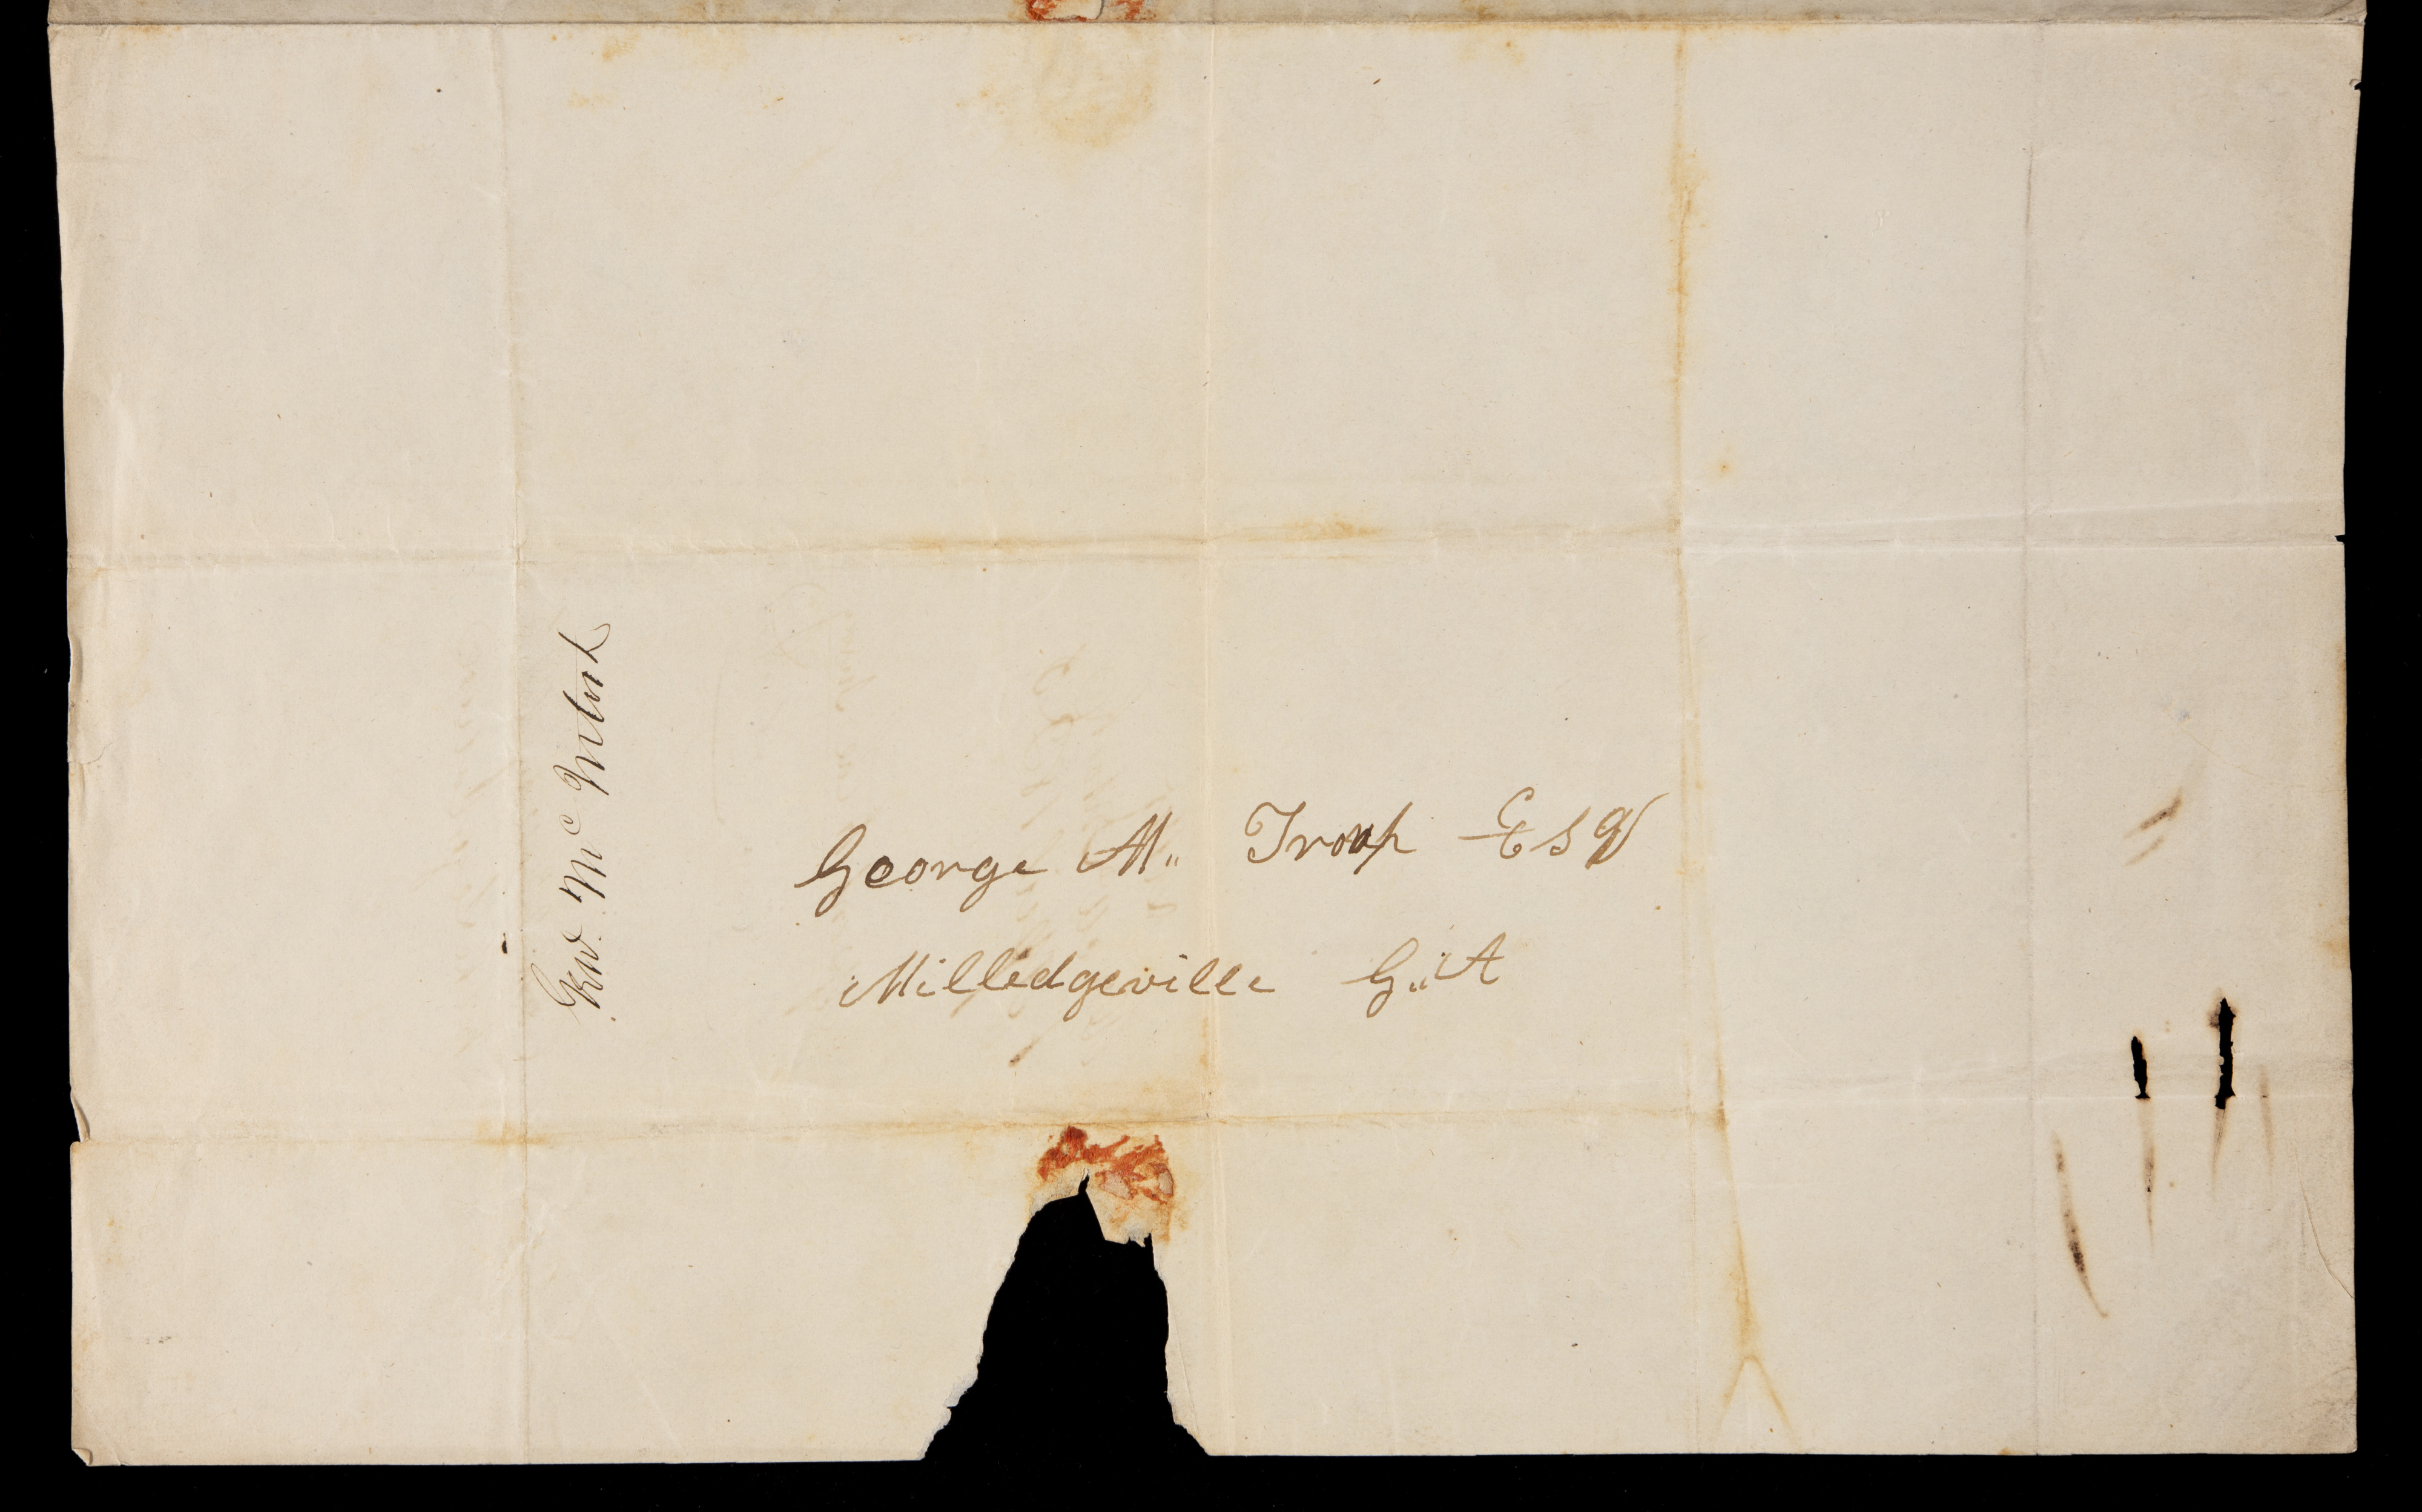 Genl. McIntosh
George M,, Troup Esq
Milledgeville G,,A